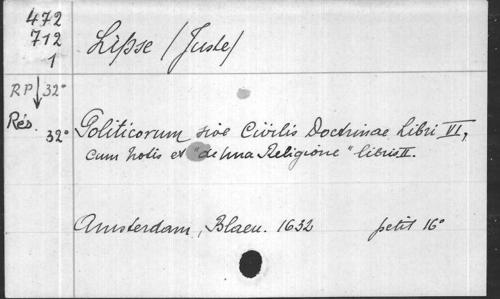 472
712
1
Lipse (Juste)
RP ↓ 32°
Rés. 32°
Politicorum sive Civilis Doctrinae Libri VI,
cum notis et "de una Religione" libris II.
Amsterdam, Blaeu. 1632 petit 16°